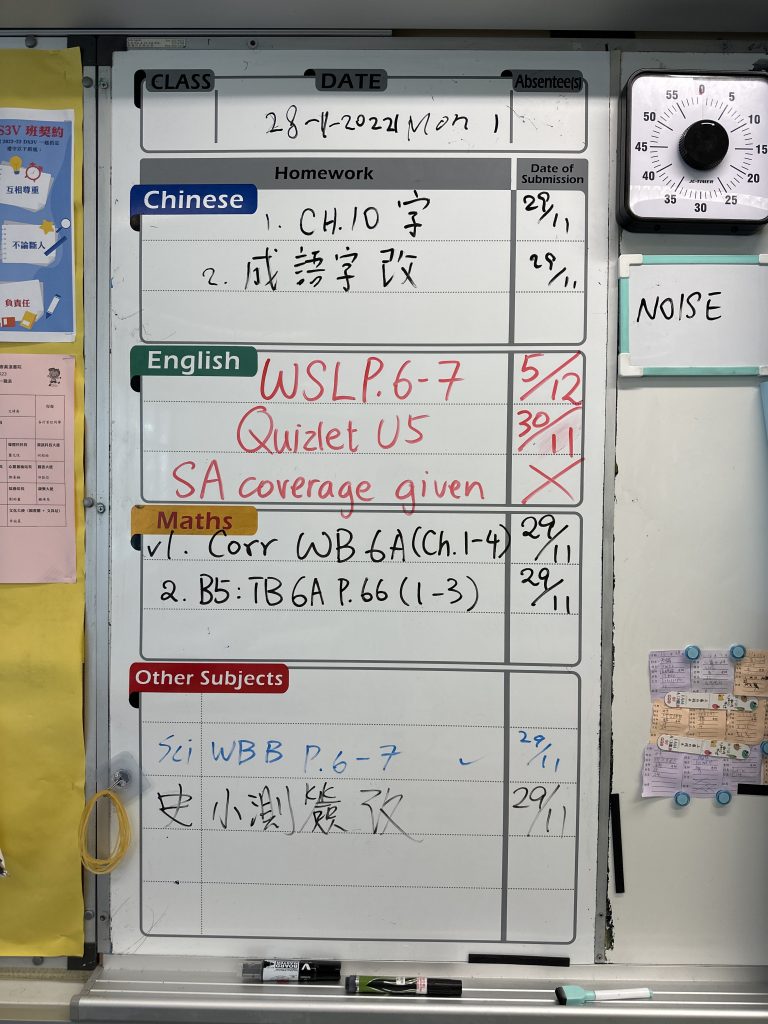 CLASS DATE Absentee(s)
28-11-2022 Mon
Homework Date of Submission
Chinese
1. CH.10 字 29/11
2. 成語字改 29/11
English
WSLP.6-7 5/12
Quizlet U5 30/11
SA coverage given X
Maths
√1. Corr WB 6A (Ch.1-4) 29/11
2. B5: TB 6A P.66 (1-3) 29/11
Other Subjects
Sci WBB P.6-7 ✓ 29/11
史小測簽改 29/11
S3V 班契約
互相尊重
不論斷人
負責任
55 0 5
50 10
45 15
40 20
35 30 25
JC-TIMER
NOISE